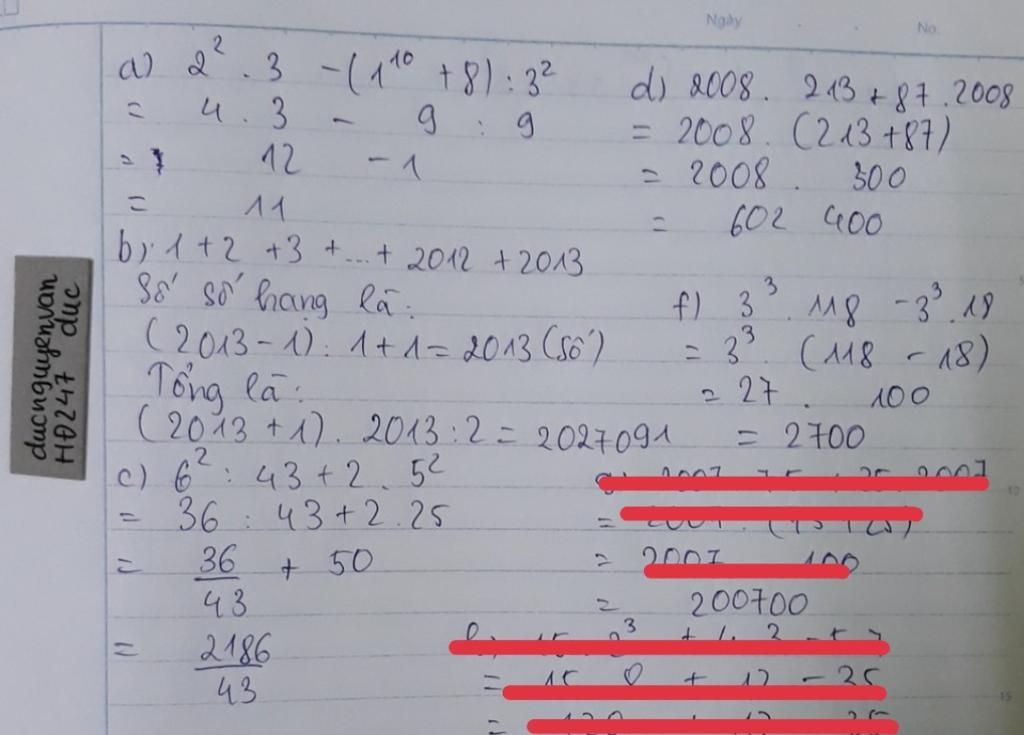 Ngày
No.
a) 2² . 3 - (1¹⁰ + 8) : 3²
= 4 . 3 - 9 : 9
= 12 - 1
= 11
b) 1 + 2 + 3 + ... + 2012 + 2013
Số số hạng là:
(2013 - 1) : 1 + 1 = 2013 (số)
Tổng là:
(2013 + 1) . 2013 : 2 = 2027091
c) 6² : 43 + 2 . 5²
= 36 : 43 + 2 . 25
= 36/43 + 50
= 2186/43
d) 2008 . 213 + 87 . 2008
= 2008 . (213 + 87)
= 2008 . 300
= 602 400
f) 3³ . 118 - 3³ . 18
= 3³ . (118 - 18)
= 27 . 100
= 2700
= 2007 100
= 200700
ducnguyenvan
HĐ247 duc
10
15